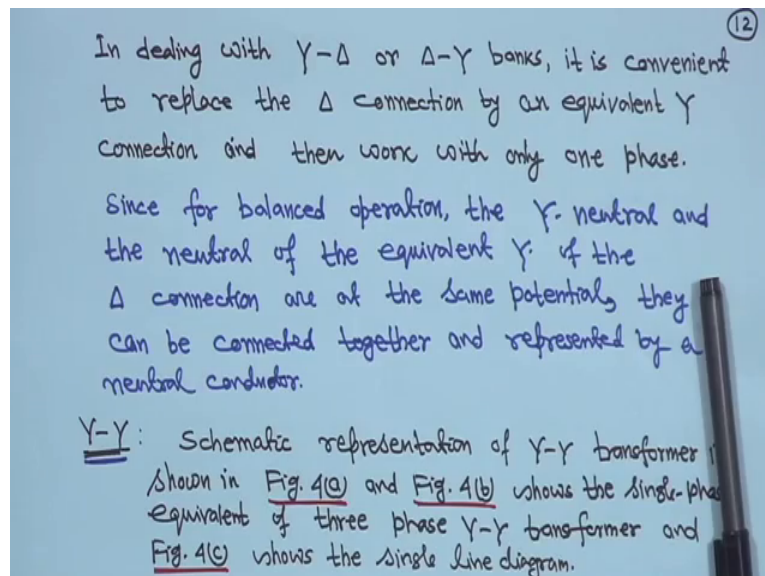 12
In dealing with Y-Δ or Δ-Y banks, it is convenient
to replace the Δ connection by an equivalent Y
connection and then work with only one phase.
Since for balanced operation, the Y- neutral and
the neutral of the equivalent Y. of the
Δ connection are at the same potential, they
can be connected together and represented by a
neutral conductor.
Y-Y: Schematic representation of Y-Y transformer
shown in Fig. 4(a) and Fig. 4(b) shows the single-phas
equivalent of three phase Y-Y transformer and
Fig. 4(c) shows the single line diagram.